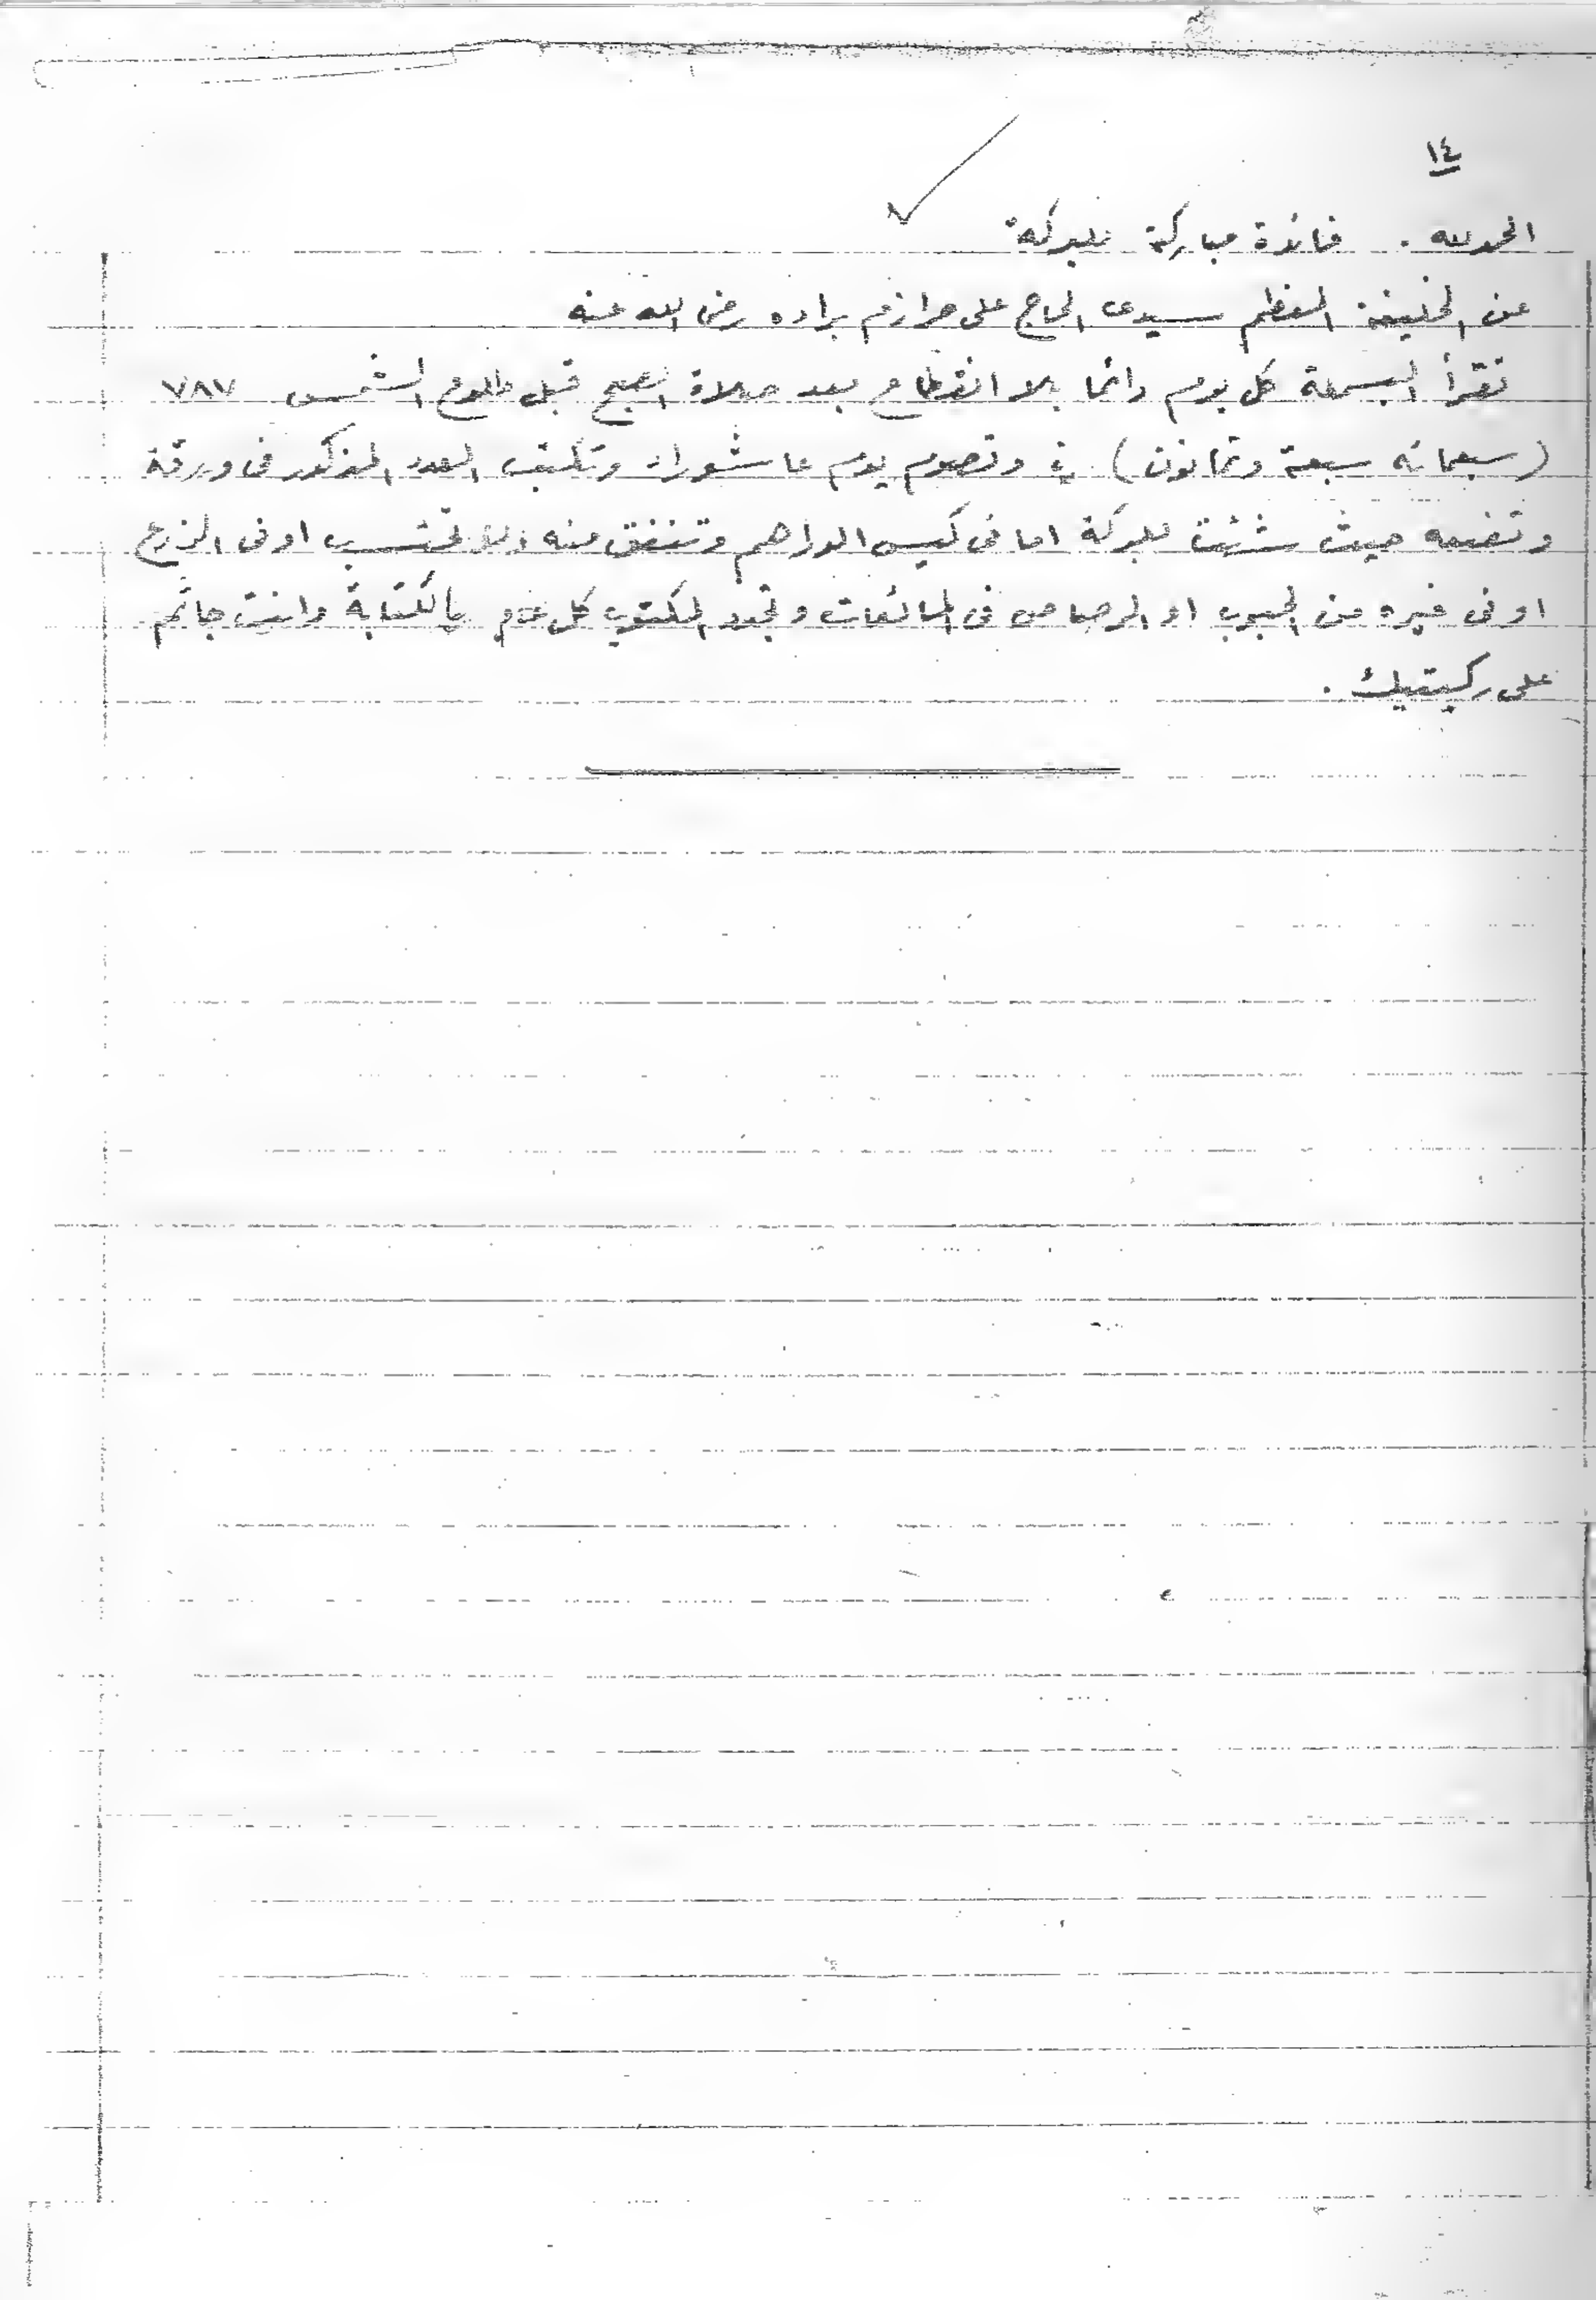 ١٤
الحمد لله . فائدة مباركة للبركة
عن الخليفة المعظم سيدى الحاج على حرازم براده رضى الله عنه
تقرأ البسملة كل يوم دائما بلا انقطاع بعد صلاة الصبح قبل طلوع الشمس ٧٨٧
(سبعمائه سبعة وثمانون) وتصوم يوم عاشوراء وتكتب العدد المذكور فى ورقة
وتضعه حيث شئت للبركة اما فى كيس الدراهم وتنفق منه ولا تحتسب او فى الزرع
او فى غيره من الحبوب او الرصاص فى المائعات وتجدد المكتوب كل عام بالكتابة وانت جاثم
على ركبتيك .